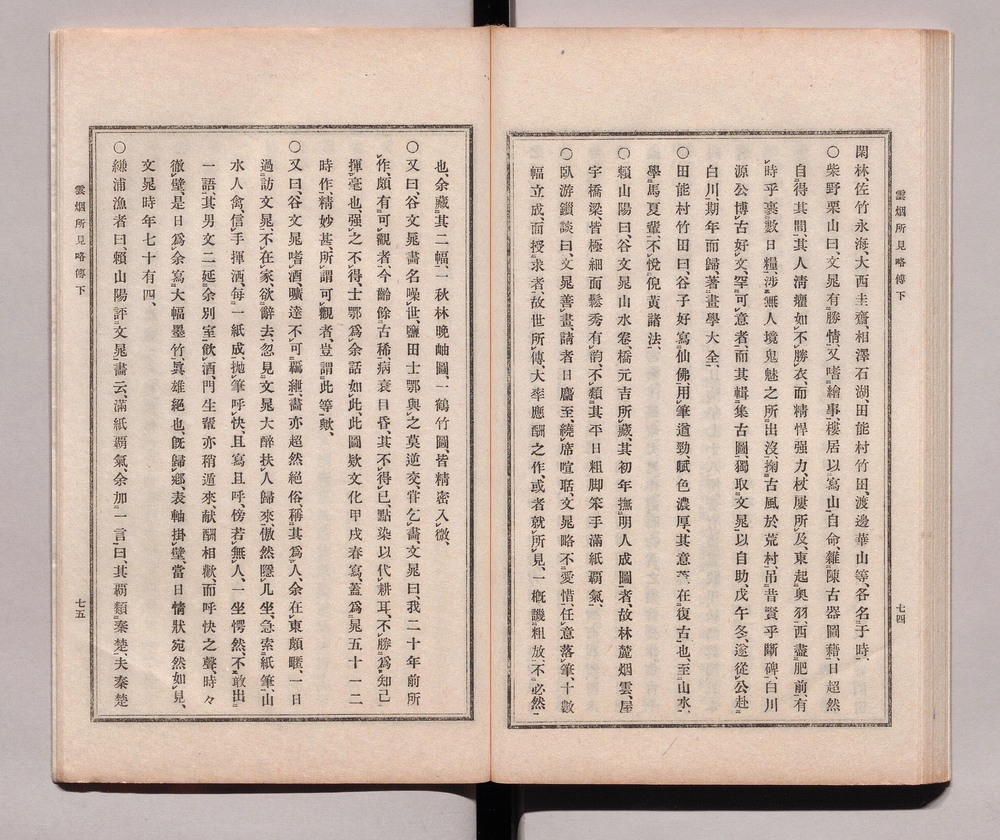 雲烟所見略傳下
七四
閑林、佐竹永海、大西圭齋、相澤石湖、田能村竹田、渡邊華山等、各名于時、
○柴野栗山曰、文晁有勝情、又嗜繪事、樓居以寫山自命、雜陳古器圖藉、日超然
自得其間、其人淸癯如不勝衣、而精悍强力、杖屨所及、東起奧羽、西盡肥前、有
時乎裹數日糧、涉無人境鬼魅之所出沒、掬古風於荒村、吊昔賢乎斷碑、白川
源公博古好文、罕可意者、而其輯集古圖、獨取文晁以自助、戊午冬、遂從公赴
白川、期年而歸、著畫學大全、
○田能村竹田曰、谷子好寫仙佛、用筆遒勁、賦色濃厚、其意在復古也、至山水、
學馬夏輩、不悅倪黃諸法、
○賴山陽曰、谷文晁山水卷、橋元吉所藏、其初年撫明人成圖者、故林麓烟雲、屋
宇橋梁、皆極細而鬆秀有韵、不類其平日粗脚笨手滿紙覇氣、
○臥游鎖談曰、文晁善畫、請者日麕至、繞席喧聒、文晁略不愛惜、任意落筆、十數
幅立成、面授求者、故世所傳、大率應酬之作、或者就所見、一槪譏粗放、不必然
也、余藏其二幅、一秋林晚岫圖、一鶴竹圖、皆精密入微、
○又曰、谷文晁畫名噪世、鹽田士鄂與之莫逆交、甞乞畫、文晁曰、我二十年前所
作、頗有可觀者、今齡餘古稀、病衰目昏、其不得已、點染以代耕耳、不勝爲知己
揮毫也、强之不得、士鄂爲余話如此、此圖欵文化甲戌春寫、蓋爲晁五十一二
時作、精妙甚、所謂可觀者、豈謂此等歟、
○又曰、谷文晁嗜酒、曠達不可羈紲、畫亦超然絕俗、稱其爲人、余在東、頗暱、一日
過訪文晁、不在家、欲辭去、忽見文晁大醉扶人歸來、傲然隱几坐、急索紙筆、山
水人禽、信手揮洒、每一紙成、抛筆呼快、且寫且呼、傍若無人、一坐愕然、不敢出
一語、其男文二延余別室、飮酒、門生輩亦稍遁來、献酬相歡、而呼快之聲、時々
徹壁、是日爲余寫大幅墨竹、眞雄絕也、旣歸鄕、表軸掛壁、當日情狀宛然如見、
文晁時年七十有四、
○浦漁者曰、賴山陽評文晁畫云、滿紙覇氣、余加一言曰、其覇類秦楚、夫秦楚
雲烟所見略傳下
七五